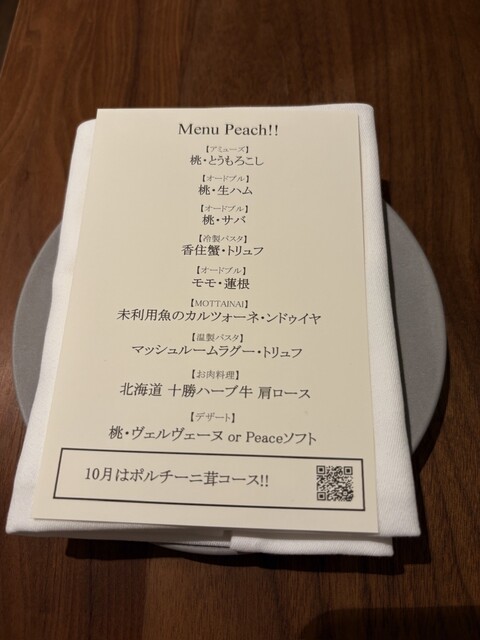 Menu Peach!!
【アミューズ】
桃・とうもろこし
【オードブル】
桃・生ハム
【オードブル】
桃・サバ
【冷製パスタ】
香住蟹・トリュフ
【オードブル】
モモ・蓮根
【MOTTAINAI】
未利用魚のカルツォーネ・ンドゥイヤ
【温製パスタ】
マッシュルームラグー・トリュフ
【お肉料理】
北海道 十勝ハーブ牛 肩ロース
【デザート】
桃・ヴェルヴェーヌ or Peaceソフト
10月はポルチーニ茸コース!!